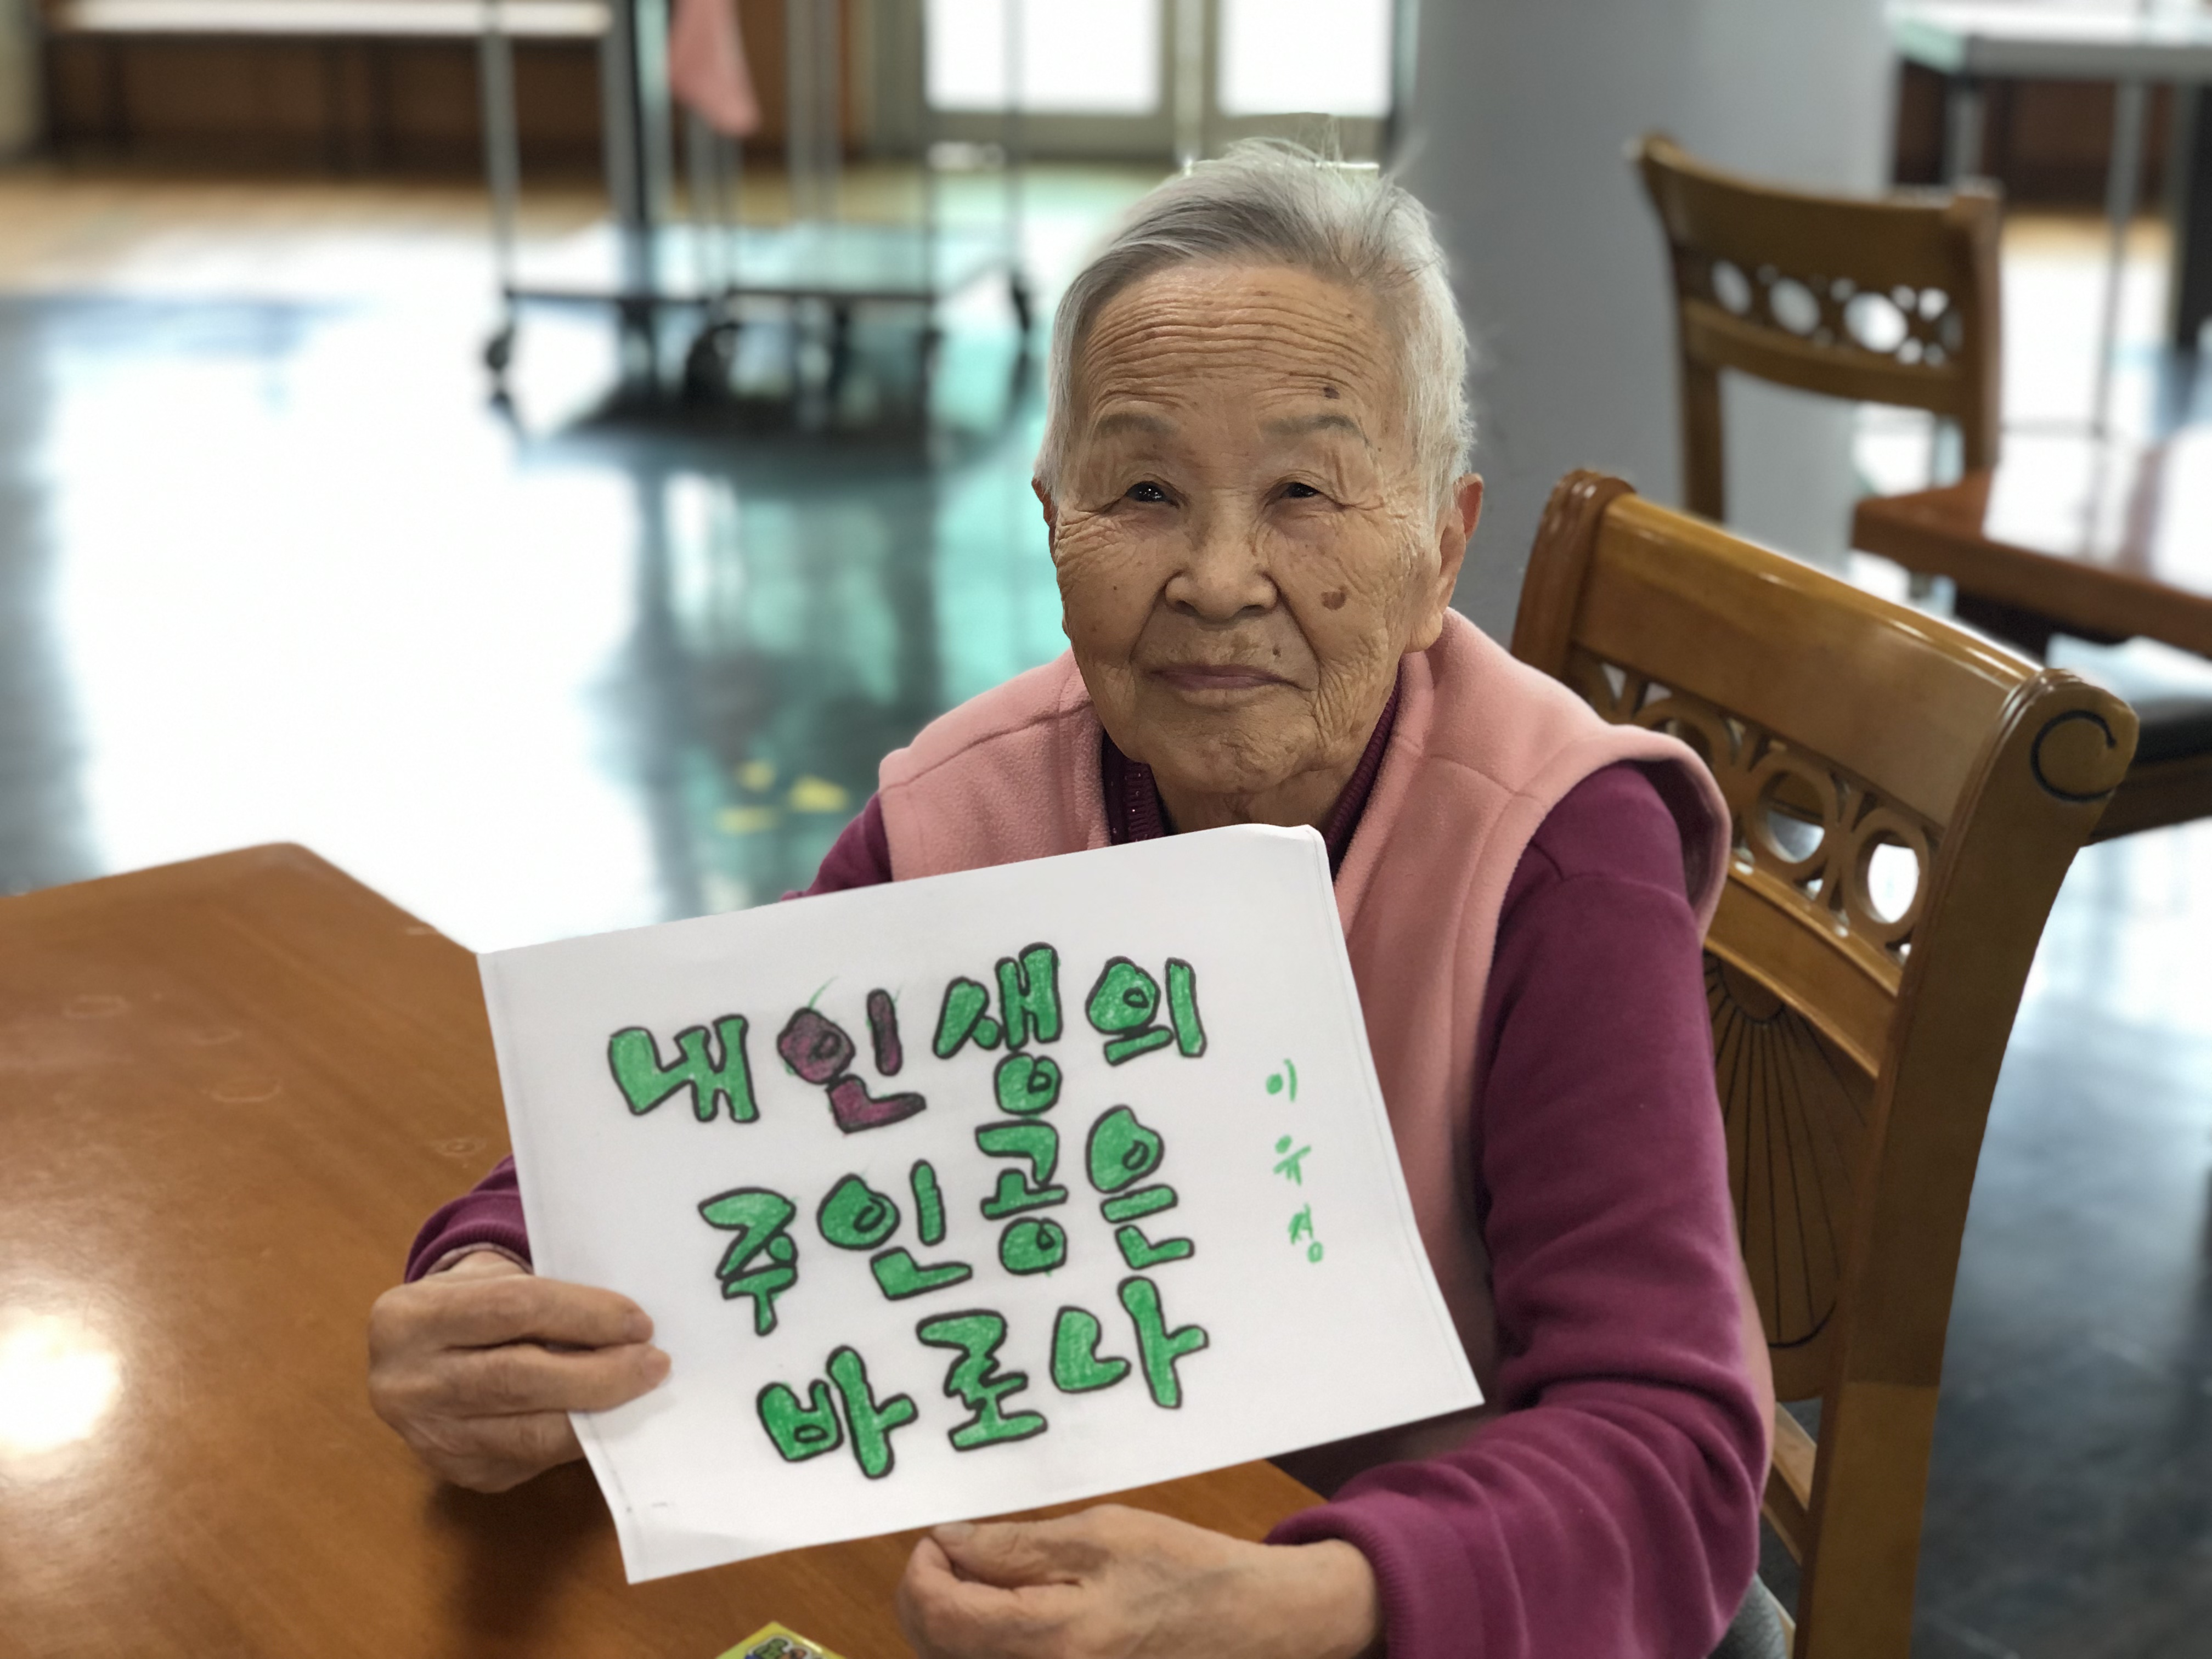 내 인생의
주인공은
바로 나
이유정